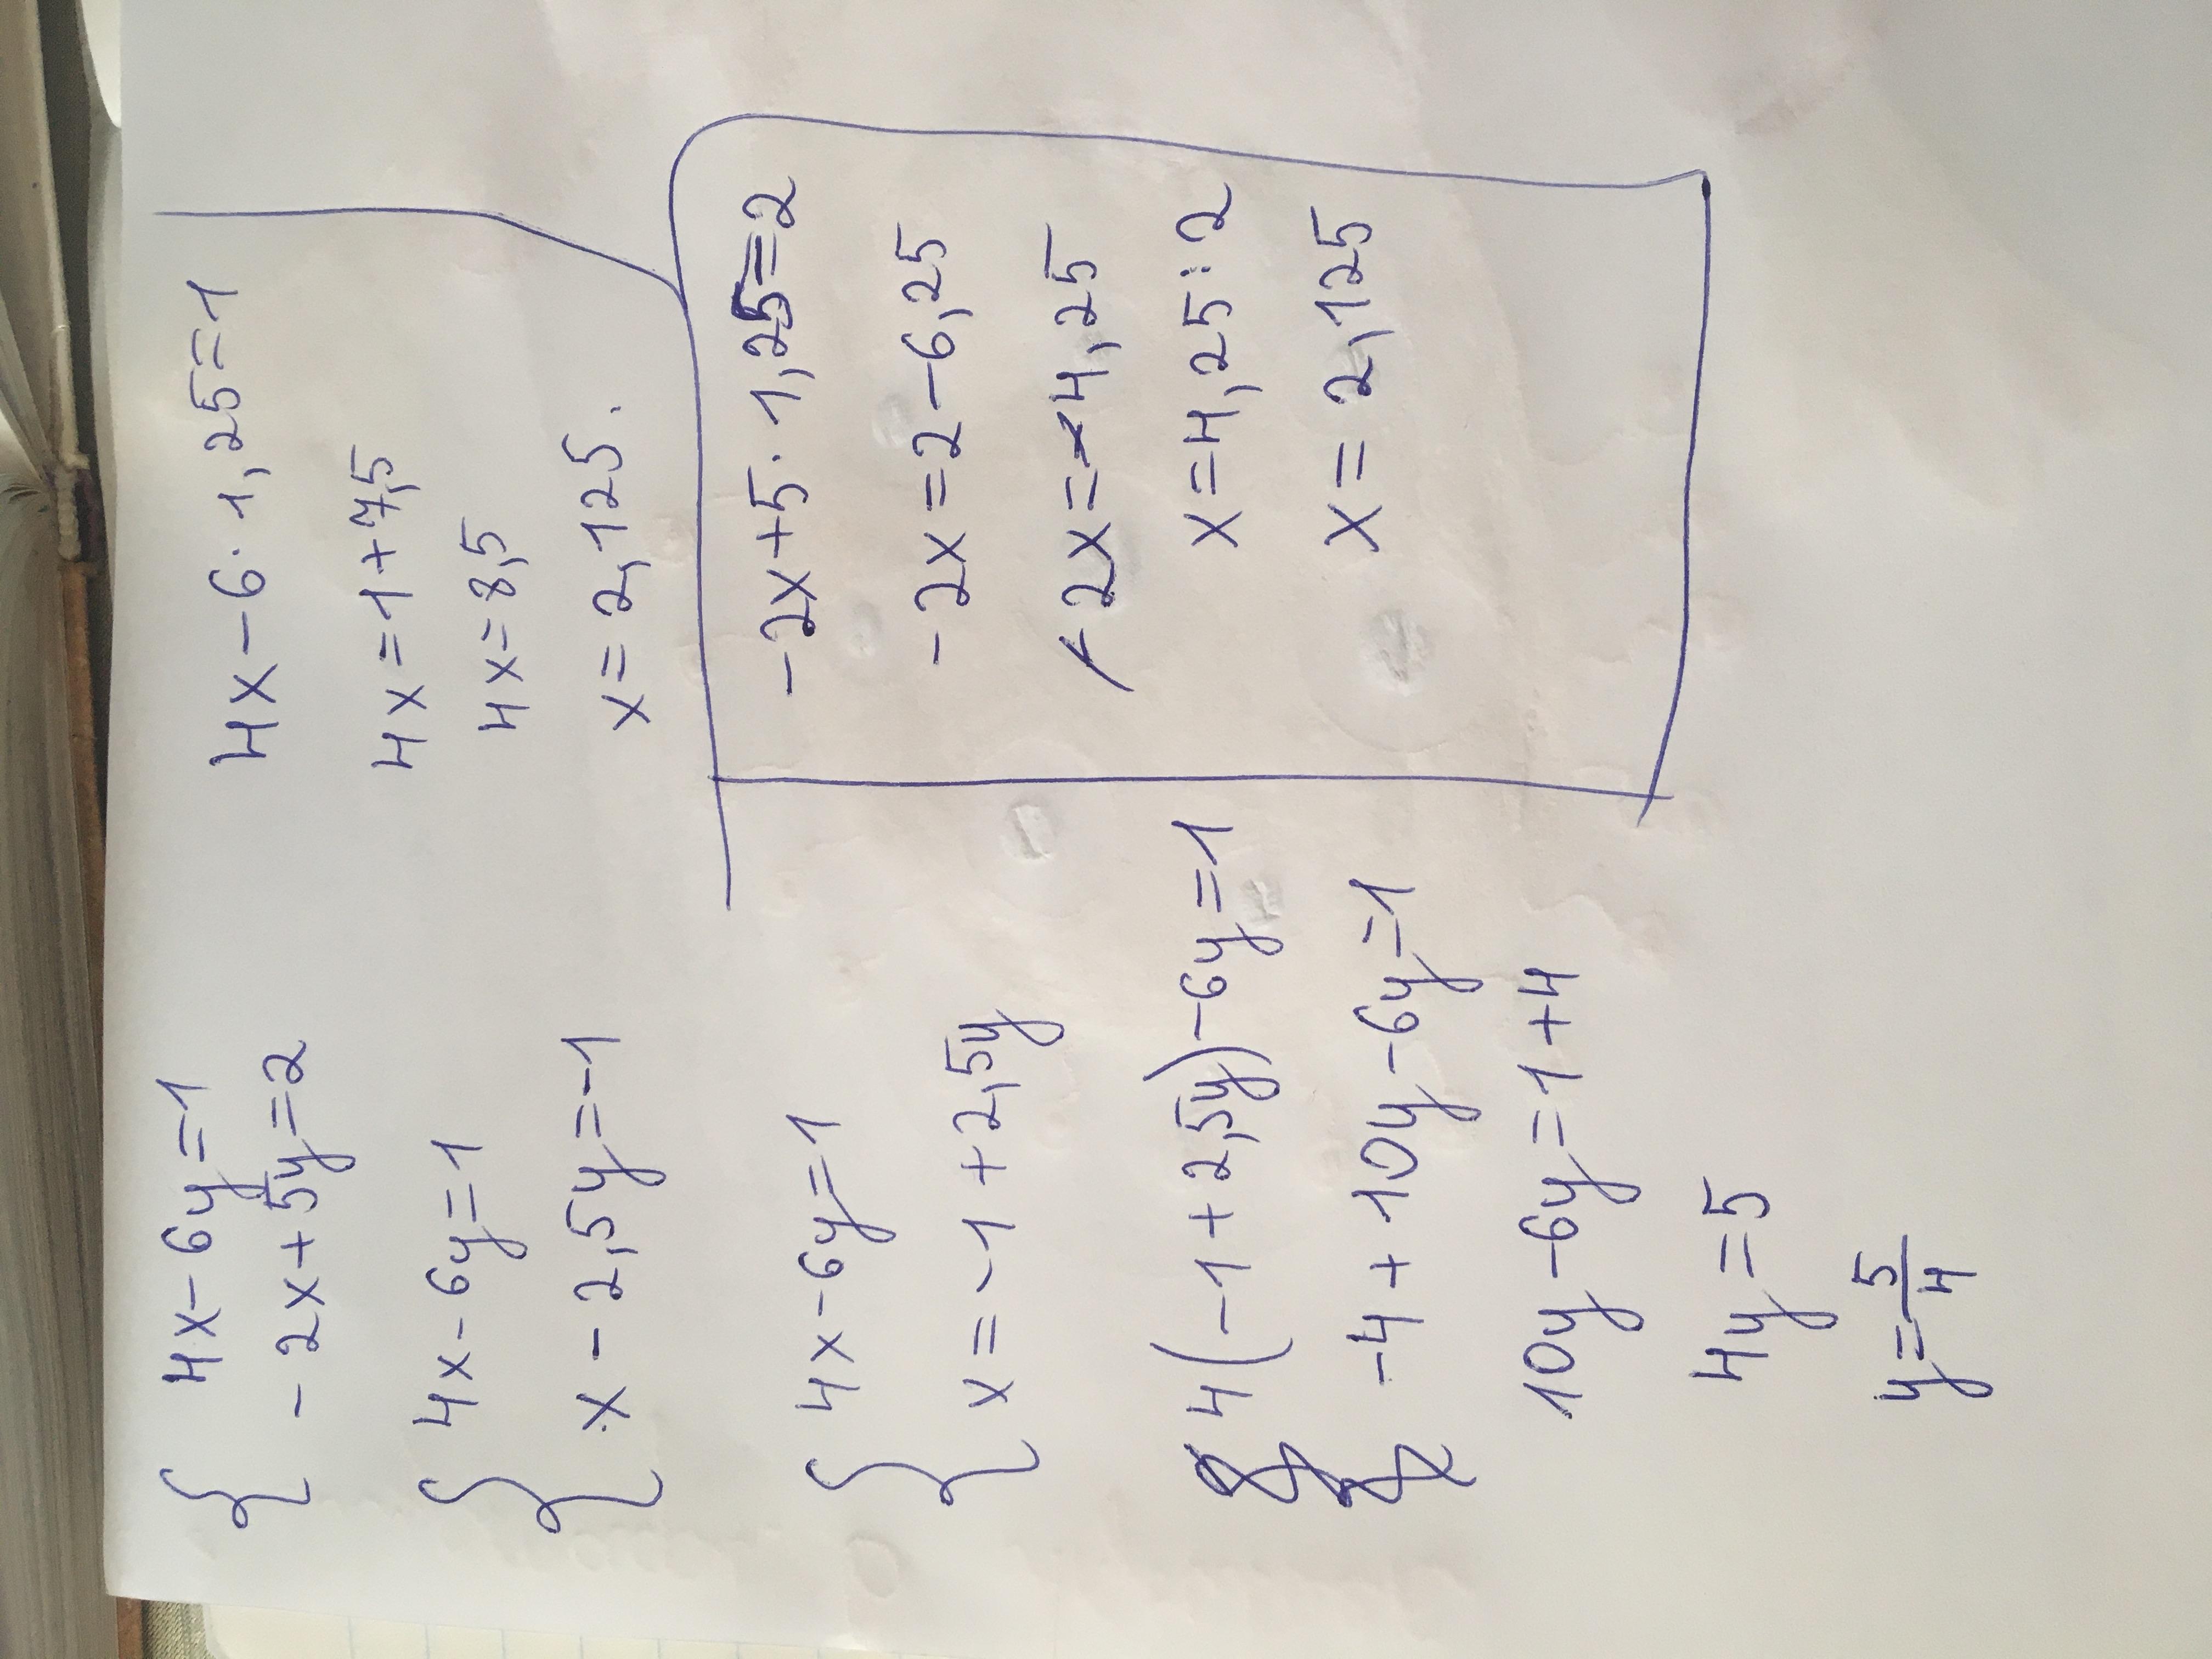 4x-6y=1
-2x+5y=2
4x-6y=1
x-2,5y=-1
4x-6y=1
x=-1+2,5y
4(-1+2,5y)-6y=1
-4+10y-6y=1
10y-6y=1+4
4y=5
y=5/4
4x-6·1,25=1
4x=1+7,5
4x=8,5
x=2,125.
-2x+5·1,25=2
-2x=2-6,25
-2x=-4,25
x=4,25:2
x=2,125